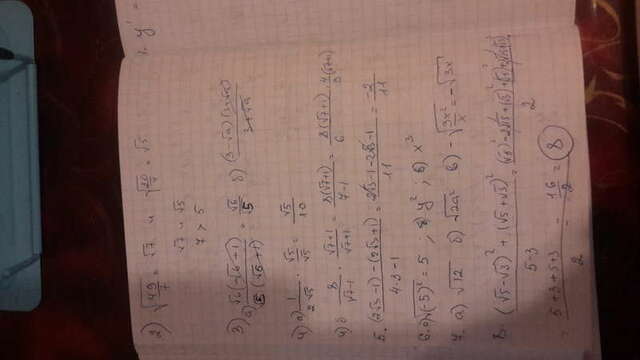 2) √(49/7) = √7 и √(20/4) = √5
√7 и √5
7 > 5
3) а) √6(√6-1) / √5(√6+1) = √6/√5 б) (3-√a)(3+√a) / 3+√a
4) а) 1/2√5 · √5/√5 = √5/10
4) б) 8/√7-1 · √7+1/√7+1 = 8(√7+1)/7-1 = 8(√7+1)/6 = 4(√7+1)/3
5. (2√3-1)-(2√3+1) / 4·3-1 = 2√3-1-2√3-1 / 11 = -2/11
6. а) √(-5)² = 5 ; б) y² ; в) x³
7. а) √12 б) √2a² в) -√(3x²/x) = -√3x
8. (√5-√3)² + (√5+√3)² / 5-3
= 5+3+5+3 / 2 = 16/2 = 8
y' =